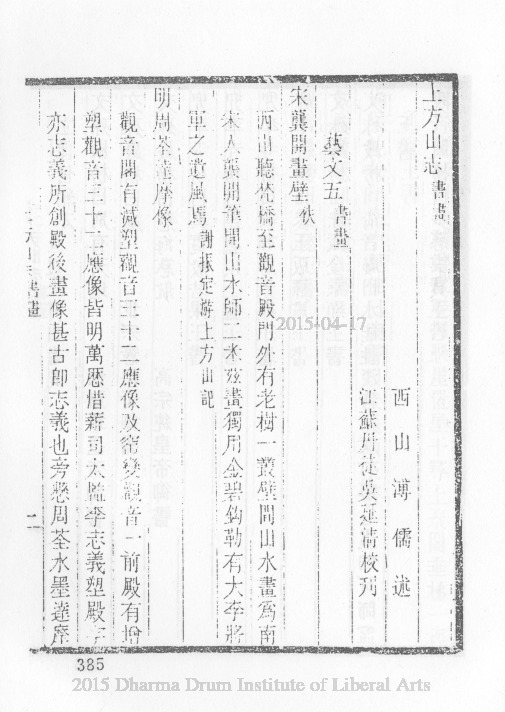 上方山志 書畫
西山溥儒述
江蘇丹徒吳延清校刋
藝文五 書畫
宋龔開畫壁 佚
西山聽梵橋至觀音殿門外有老樹一叢壁間山水畫爲南
宋人龔開筆開山水師二米茲畫獨用金碧鈎勒有大李將
軍之遺風焉 謝振定游上方山記
明周荃達摩像
觀音閣有減塑觀音三十二應像及窰變觀音一前殿有增
塑觀音三十二應像皆明萬曆惜薪司太監李志義塑殿
亦志義所創殿後畫像甚古卽志義也旁懸周荃水墨達摩
上方山志 書畫
二
385
2015-04-17
2015 Dharma Drum Institute of Liberal Arts